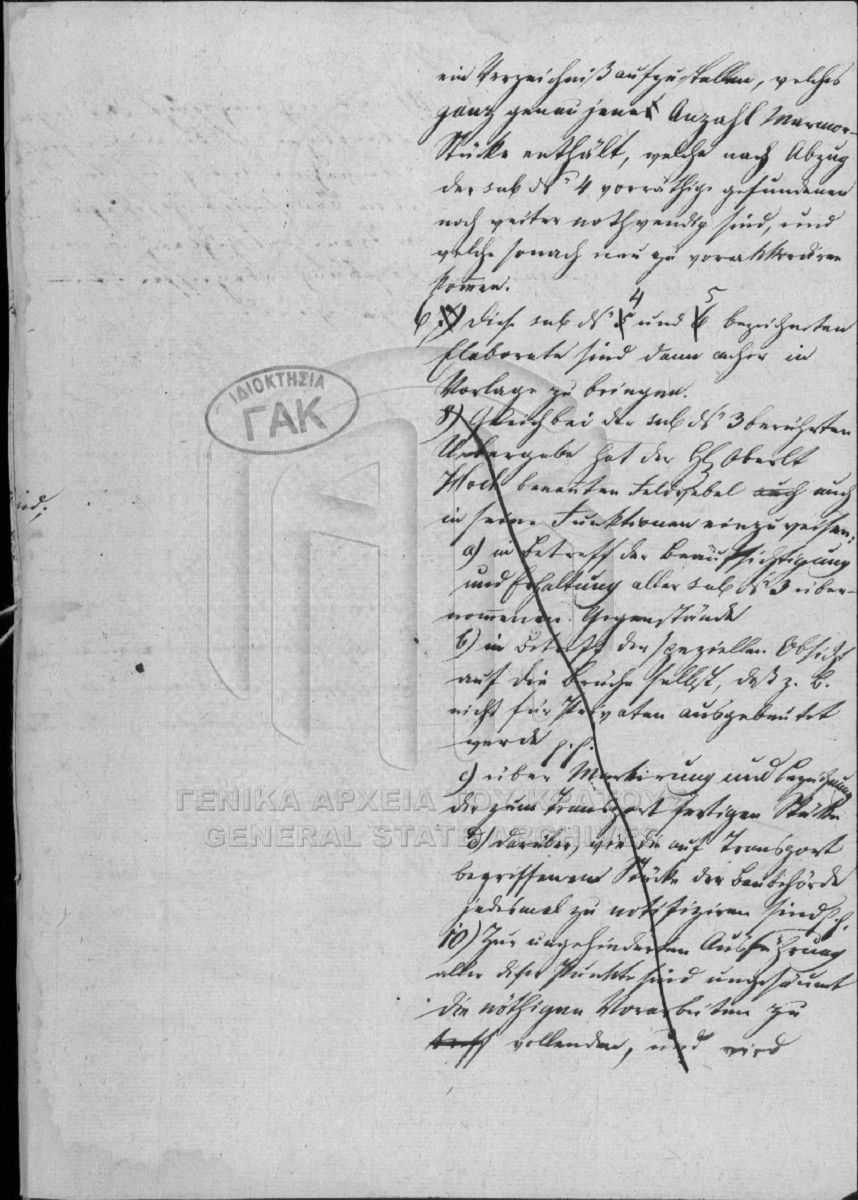 ein Verzeichniß aufzustellen, welches
ganz genau jene Anzahl Marmor-
Stücke enthält, welche nach Abzug
der sub № 4 vorräthig gefundenen
noch weiter nothwendig sind, und
welche sonach neu zu verakkordiren
kommen.
6 Diese sub № 4 und 5 bezeichneten
Elaborate sind dann anher in
Vorlage zu bringen.
8) Gleich bei der sub № 3 berührten
Uebergabe hat der H. Oberlt
Hoch benannten Feldwebel auch auch
in seine Funktionen einzuweisen:
a) in Betreff der Beaufsichtigung
und Erhaltung aller sub № 3 über-
nommenen Gegenstände
b) in Betreff der speziellen Obsicht
auf die Brüche selbst, daß z. B.
nicht für Privaten ausgebeutet
werde p.p.
c) über Markirung und Bezeichnung
der zum Transport fertigen Stücke
d) darüber, wie die auf Transport
begriffenen Stücke der Baubehörde
jedesmal zu notifiziren sind p.p.
10) Zur ungehinderten Ausführung
aller dieser Punkte sind ungesäumt
die nöthigen Vorarbeiten zu
treff vollenden, und wird
ind;
ΙΔΙΟΚΤΗΣΙΑ
ΓΑΚ
ΓΕΝΙΚΑ ΑΡΧΕΙΑ ΤΟΥ ΚΡΑΤΟΥΣ
GENERAL STATE ARCHIVES